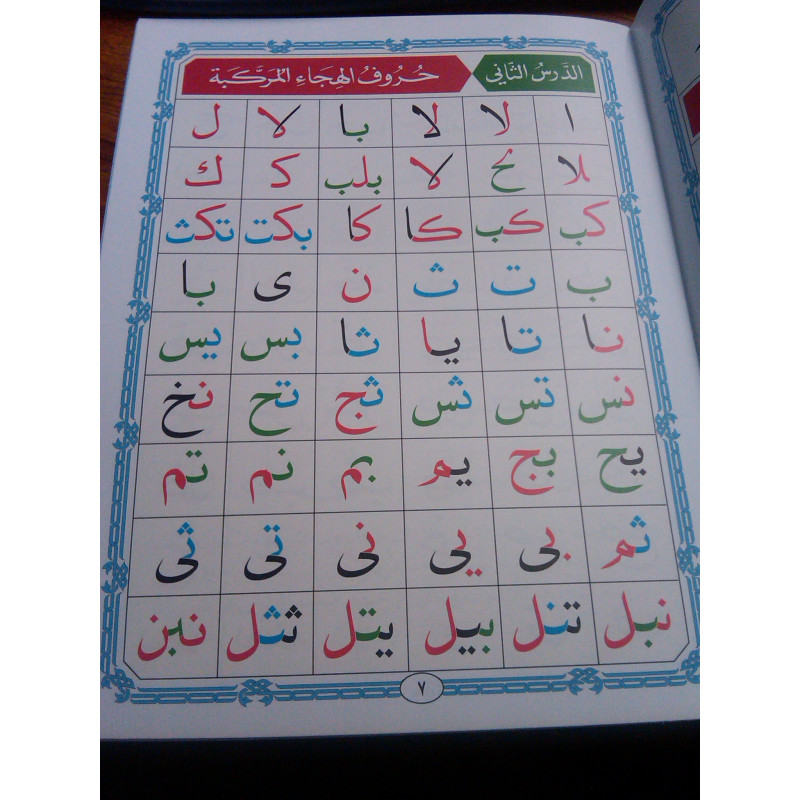 الدَّرسُ الثَّانِي حُرُوفُ الهِجَاءِ المُرَكَّبَة
ا لا لا با لا ل
ـلا لا بلب ک ك
كب كب كا كا بكت تكث
ب ت ث ن ى با
نا تا يا ثا بس يس
نس تس ثس ثج تح نخ
يح بج يم بم نم تم
ثم بى يى نى تى ثى
نبل تنل بيل يتل ثثل نبن
٧